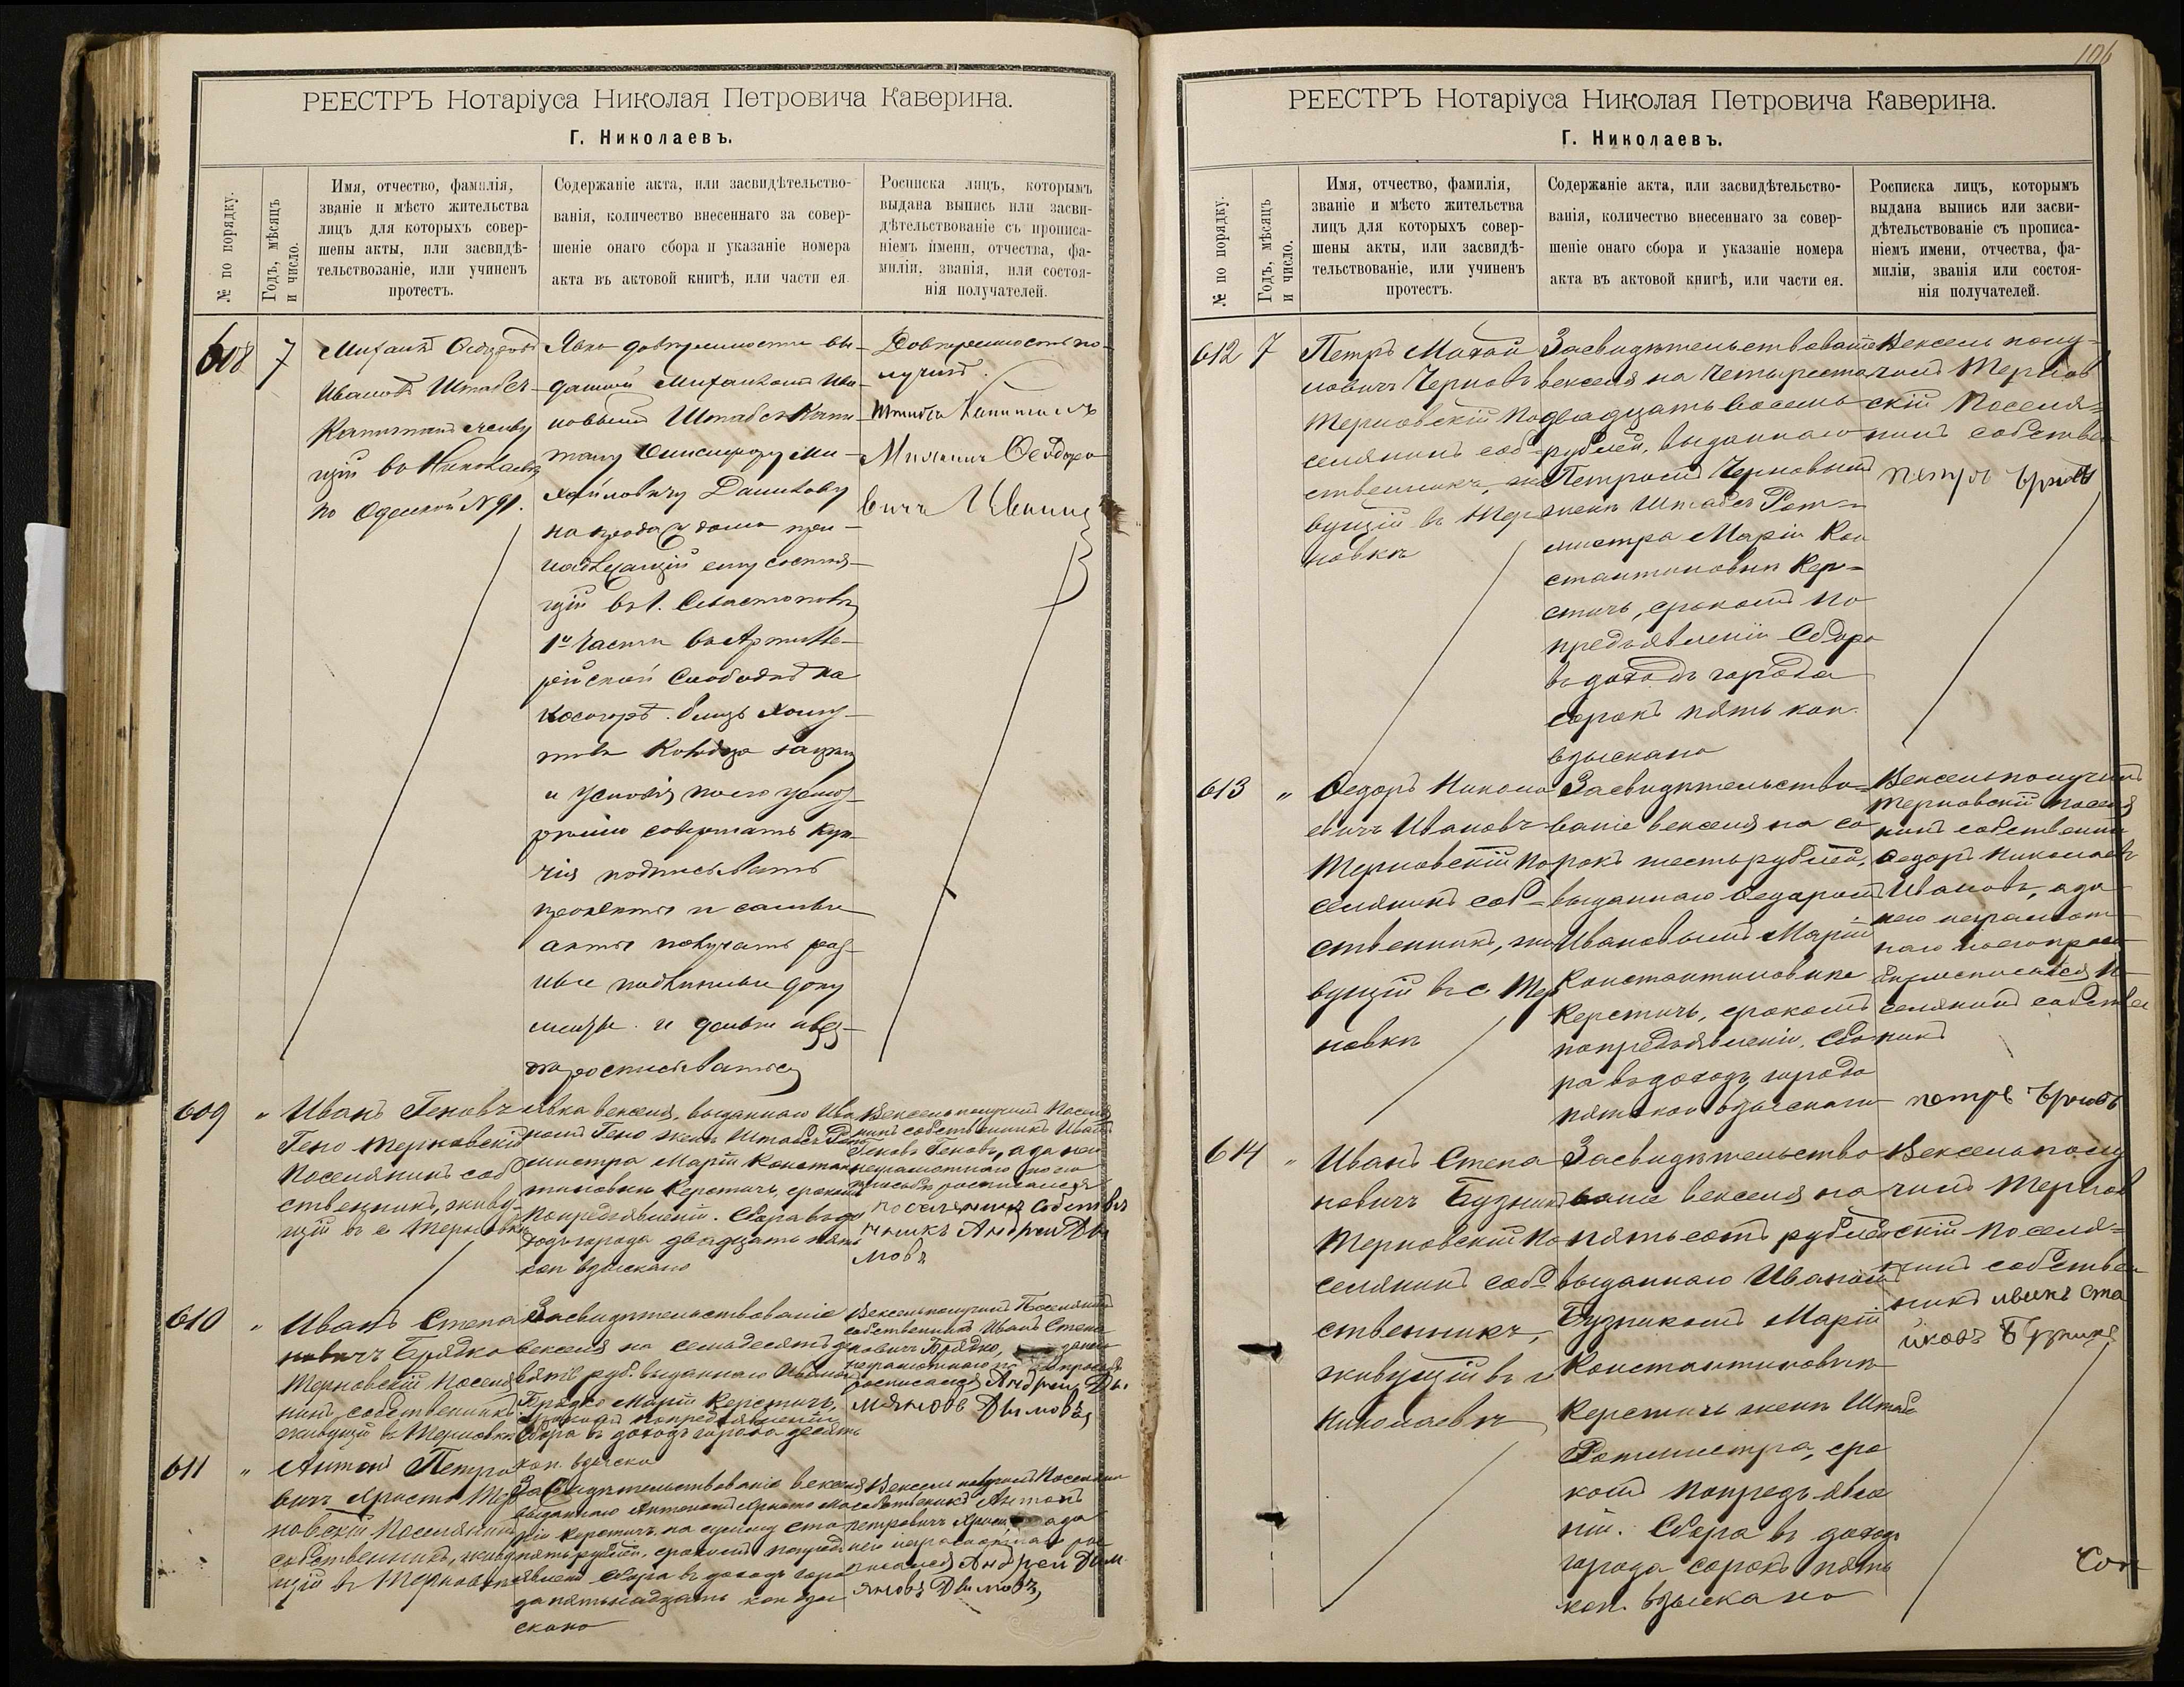 РЕЕСТРЪ Нотаріуса Николая Петровича Каверина.
Г. Николаевъ.
№ по порядку.
Годъ, мѣсяцъ
и число.
Имя, отчество, фамилія,
званіе и мѣсто жительства
лицъ для которыхъ совер-
шены акты, или засвидѣ-
тельствованіе, или учиненъ
протестъ.
Содержаніе акта, или засвидѣтельство-
ванія, количество внесеннаго за совер-
шеніе онаго сбора и указаніе номера
акта въ актовой книгѣ, или части ея.
Росписка лицъ, которымъ
выдана выпись или засви-
дѣтельствованіе съ прописа-
ніемъ имени, отчества, фа-
миліи, званія, или состоя-
нія получателей.
608
7
Михаилъ Федоровъ
Ивановъ Штабсъ-
Капитанъ живу
щій въ Николаевѣ
по Одесской № 91.
Явка довѣренности вы-
данной Михаиломъ Ива-
новымъ Штабсъ-Капи-
тану Михайловичу Данилову
на продажу дома при-
надлежащій ему состоя-
щій въ г. Севастополѣ
1й части въ Артилле-
рійской Слободкѣ на
косогорѣ близь
колодца
и условія по его усмо-
трѣнію совершать куп-
чія подписывать
проэкты и самые
акты получать раз-
ные подлинные доку
менты и
росписываться
Довѣренность по-
лучилъ
Штабсъ Капитанъ
Михаилъ Ѳеодоро
вичъ Ивановъ
609
"
Иванъ Геновъ
Гено Терновскій
Поселянинъ соб
ственникъ, живу-
щій въ с Терновкѣ
Явка векселя, выданнаго Ива
номъ Гено женѣ Штабсъ Рот
мистра Маріи Констан
тиновнѣ Керстичъ, срокомъ
по предъявленіи. Сбора въ до
ходъ города двадцать пять
коп взыскано
Вексель получилъ Поселя
нинъ собственникъ Иванъ
Геновъ Геновъ, а за него
неграмотнаго по его
просьбѣ росписался
поселянинъ Собствѣ
нникъ Андрей Ды
мовъ
610
"
Иванъ Степа
новичъ Брядко
Терновскій Поселя
нинъ собственникъ
живущій въ Терновкѣ
Засвидѣтельствованіе
векселя на семьдесятъ де
вять руб. выданнаго Иваномъ
Брядко Маріи Керстичъ,
срокомъ по предъявленіи
Сбора въ доходъ города десять
коп. взыскано
Вексель получилъ Поселянинъ
собственникъ Иванъ Степа
новичъ Брядко,
неграмотнаго
росписался Андрей Ды
мяновъ Дымовъ
611
"
Антонъ Петро
вичъ Христо Тер
новскій Поселянинъ
собственникъ, живу
щій въ Терновкѣ
Засвидѣтельствованіе векселя
выданнаго Антономъ Христо Ма
ріи Керстичъ на сумму сто
пять рублей, срокомъ по предъ
явленіи Сбора въ доходъ горо
да пятьнадцать коп взы
скано
Вексель получилъ Поселянинъ
собственникъ Антонъ
Петровичъ Христо а за
него неграмотнаго рос
писался Андрей Дым
яновъ Дымовъ
106
РЕЕСТРЪ Нотаріуса Николая Петровича Каверина.
Г. Николаевъ.
№ по порядку.
Годъ, мѣсяцъ
и число.
Имя, отчество, фамилія,
званіе и мѣсто жительства
лицъ для которыхъ совер-
шены акты, или засвидѣ-
тельствованіе, или учиненъ
протестъ.
Содержаніе акта, или засвидѣтельство-
ванія, количество внесеннаго за совер-
шеніе онаго сбора и указаніе номера
акта въ актовой книгѣ, или части ея.
Росписка лицъ, которымъ
выдана выпись или засви-
дѣтельствованіе съ прописа-
ніемъ имени, отчества, фа-
миліи, званія или состоя-
нія получателей.
612
7
Петръ Михай
ловичъ Черновъ
Терновскій По
селянинъ соб-
ственникъ, жи
вущій въ Тер
новкѣ
Засвидѣтельствованіе
векселя на четыреста
двадцать восемь
рублей, выданнаго
Петромъ Черновымъ
женѣ Штабсъ Рот-
мистра Маріи Кон
стантиновнѣ Кер-
стичъ, срокомъ по
предъявленіи Сбора
въ доходъ города
сорокъ пять коп.
взыскано
Вексель полу-
чилъ Тернов
скій Поселя-
нинъ собствен
петръ чрновъ
613
"
Федоръ Никола
евичъ Ивановъ
Терновскій По
селянинъ соб-
ственникъ, жи
вущій въ с. Тер
новкѣ
Засвидѣтельство-
ваніе векселя на со
рокъ шесть рублей,
выданнаго Федоромъ
Ивановымъ Маріи
Константиновнѣ
Керстичъ, срокомъ
по предъявленіи. Сбо
ра въ доходъ города
пять коп взыскано
Вексель получилъ
Терновскій поселя
нинъ собственникъ
Федоръ Николаевъ
Ивановъ, а за
него неграмот
наго по его прось
бѣ росписался По
селянинъ собствен
никъ
петръ Чрновъ
614
"
Иванъ Степа
новичъ Бузникъ
Терновскій По
селянинъ соб
ственникъ,
живущій въ г
Николаевѣ
Засвидѣтельство
ваніе векселя на
пятьсотъ рублей
выданнаго Иваномъ
Бузникомъ Маріи
Константиновнѣ
Керстичъ женѣ Штаб
Ротмистра, сро
комъ по предъявле
ніи. Сбора въ доходъ
города сорокъ пять
коп. взыскано
Вексель полу
чилъ Тернов
скій Поселя-
нинъ собствен
никъ иванъ Ста
йковъ Бузникъ